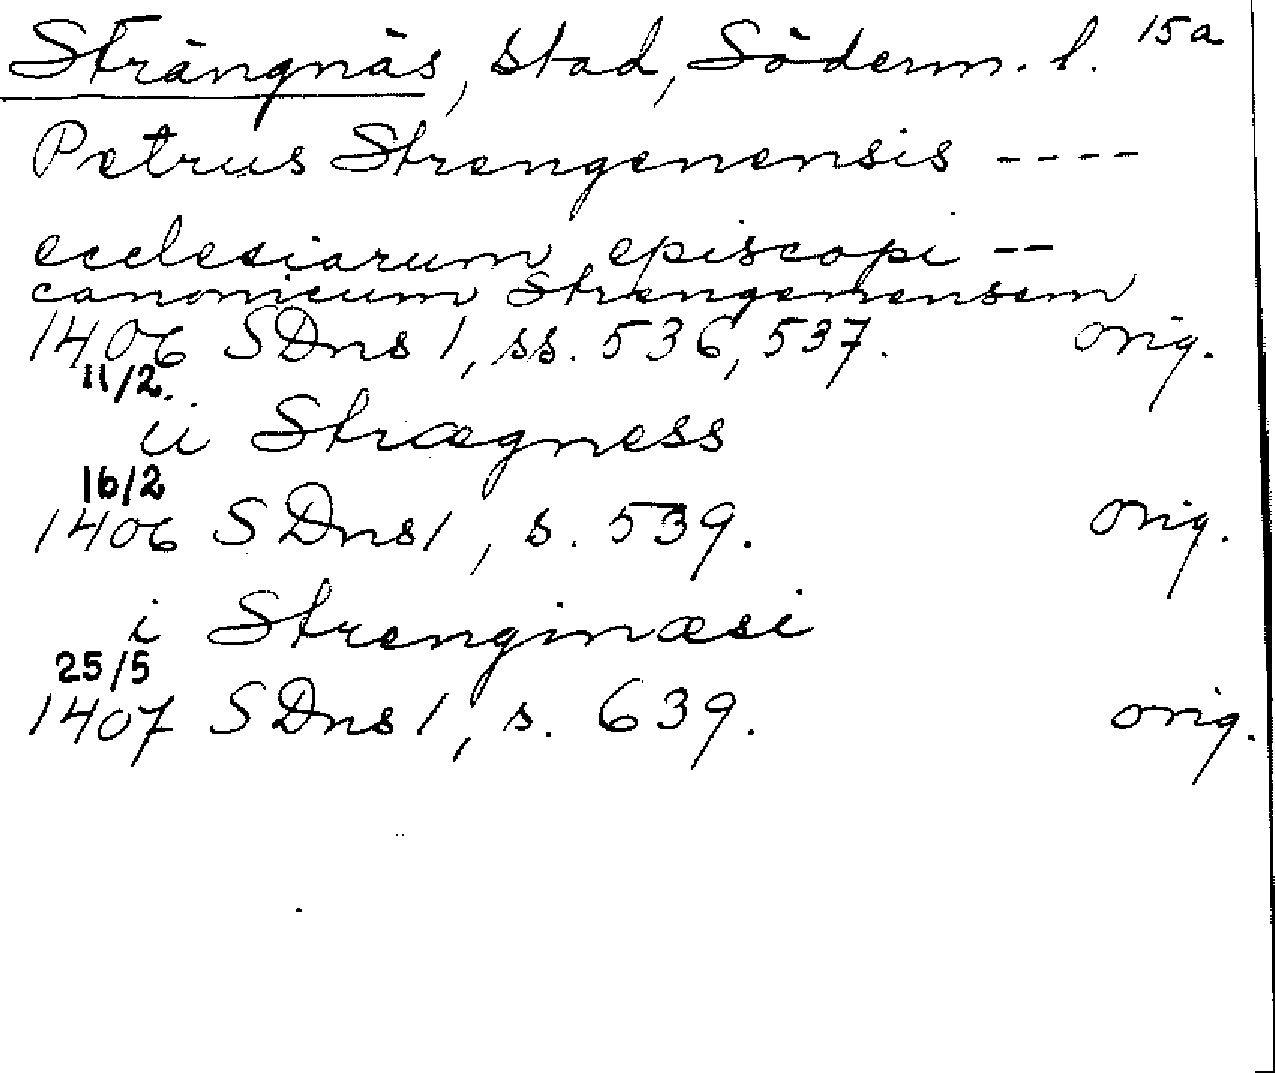 Strängnäs, stad, Söderm. l. 15a
Petrus Strengenensis ----
ecclesiarum episcopi --
canonicum Strengenensem
1406 SDns 1, ss. 536, 537. orig.
11/2.
ii Strægness
16/2
1406 SDns 1, s. 539. orig.
i Strenginæsi
25/5
1407 SDns 1, s. 639. orig.